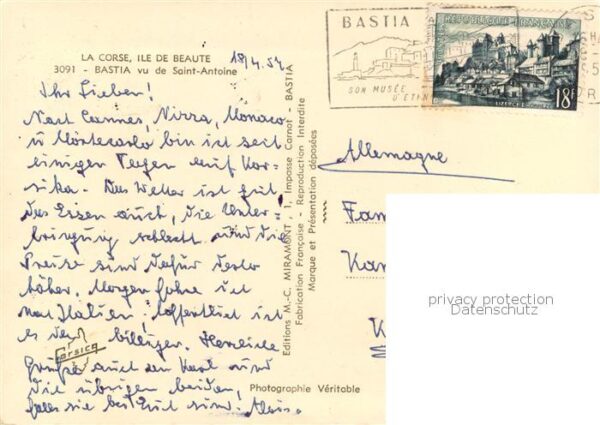 LA CORSE, ILE DE BEAUTE
3091 - BASTIA vu de Saint-Antoine
18/4.57
Ihr Lieben!
Nach Cannes, Nizza, Monaco
u Montecarlo bin ich seit
einigen Tagen auf Kor-
sika. Das Wetter ist gut
das Essen auch, die Unter-
bringung schlecht und die
Preise sind dafür desto
höher. Morgen fahre ich
nach Italien. Hoffentlich ist
es da billiger. Herzliche
Grüße auch an Karl und
die übrigen beiden,
falls sie bei Euch sind. Alois.
Corsica
Editions M.-C. MIRAMONT, 1, Impasse Carnot - BASTIA
Fabrication Française - Reproduction Interdite
Marque et Présentation déposées
Photographie Véritable
BASTIA
SON MUSÉE
D'ETHN
REPUBLIQUE FRANÇAISE
UZERCHE
18F
Allemagne
Fam
Kar
K
privacy protection
Datenschutz